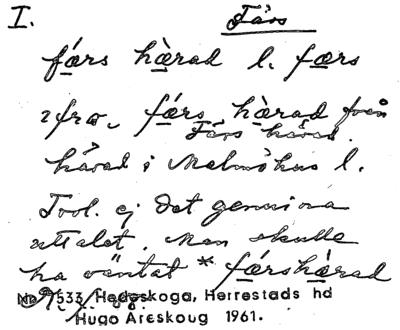 I. Färs
fǽrs hæ̀rad l. færs
fǽrs hæ̀rad från
Färs härad
härad i Malmöhus l.
Trol. ej det genuina
uttalet. Man skulle
ha väntat * fǽrshærad
No 7533 Hedeskoga, Herrestads hd
Hugo Areskoug 1961.